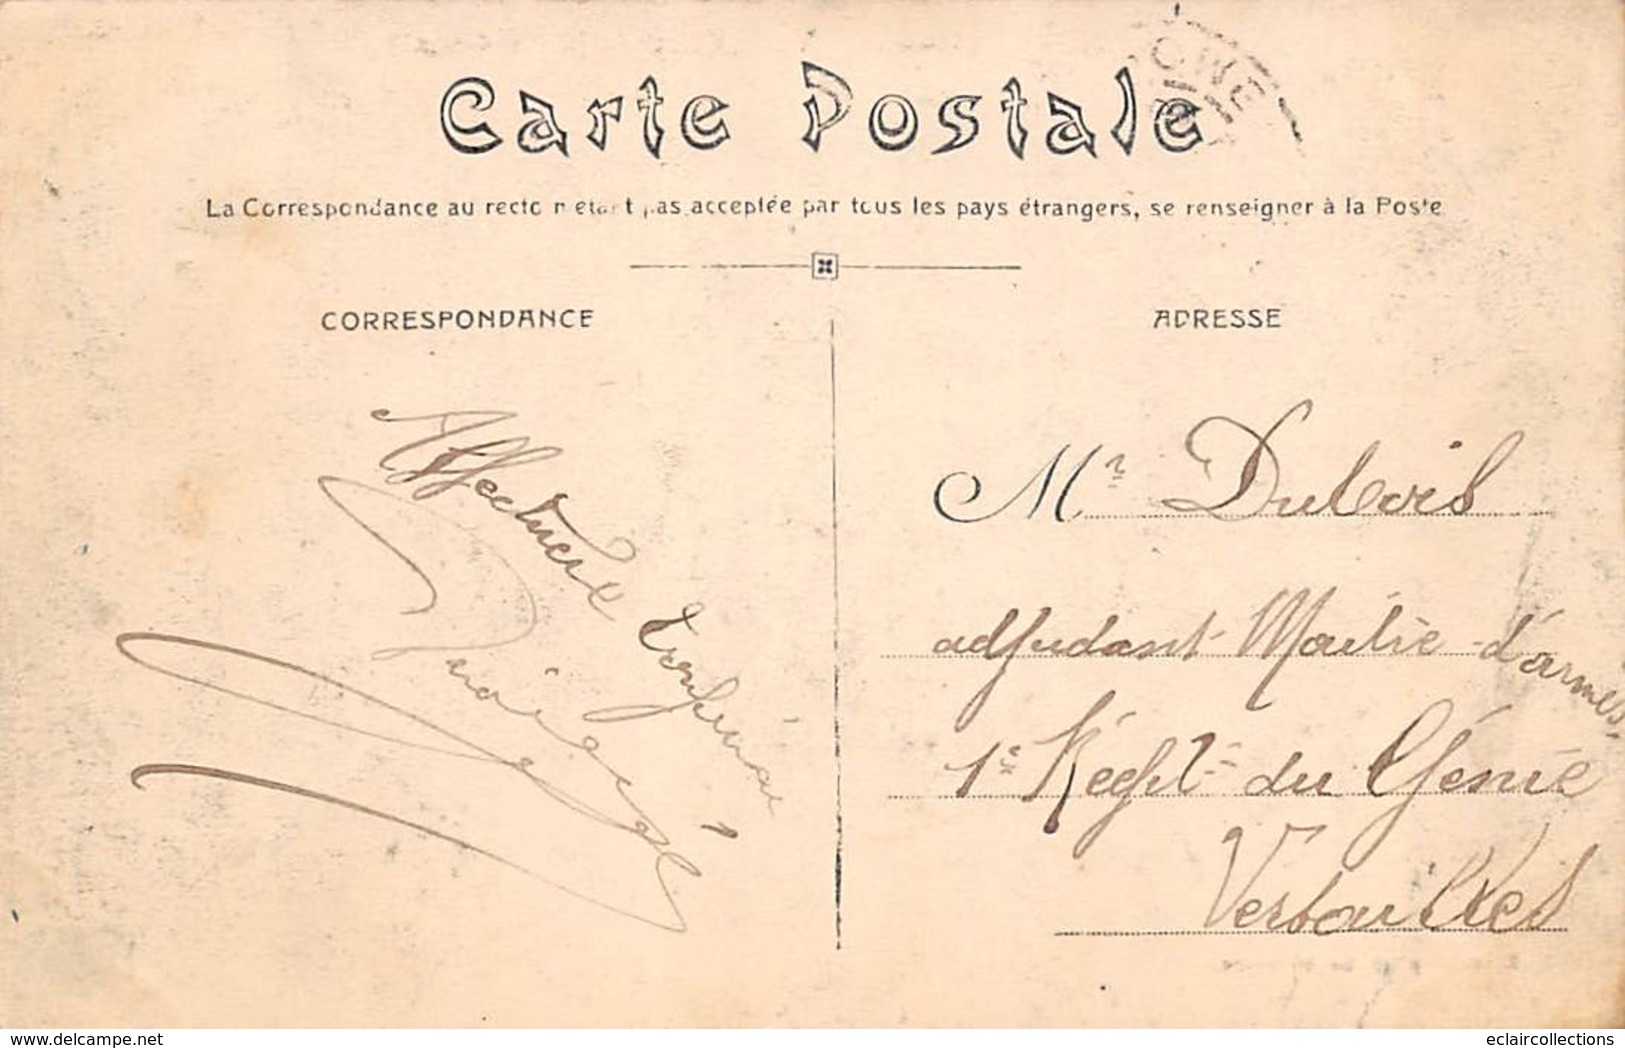 Carte Postale
La Correspondance au recto n'étant pas acceptée par tous les pays étrangers, se renseigner à la Poste
CORRESPONDANCE
ADRESSE
Affectueux
Mr Dubois
adjudant Maître d'armes
1er Régt du Génie
Versailles
eclaircollections